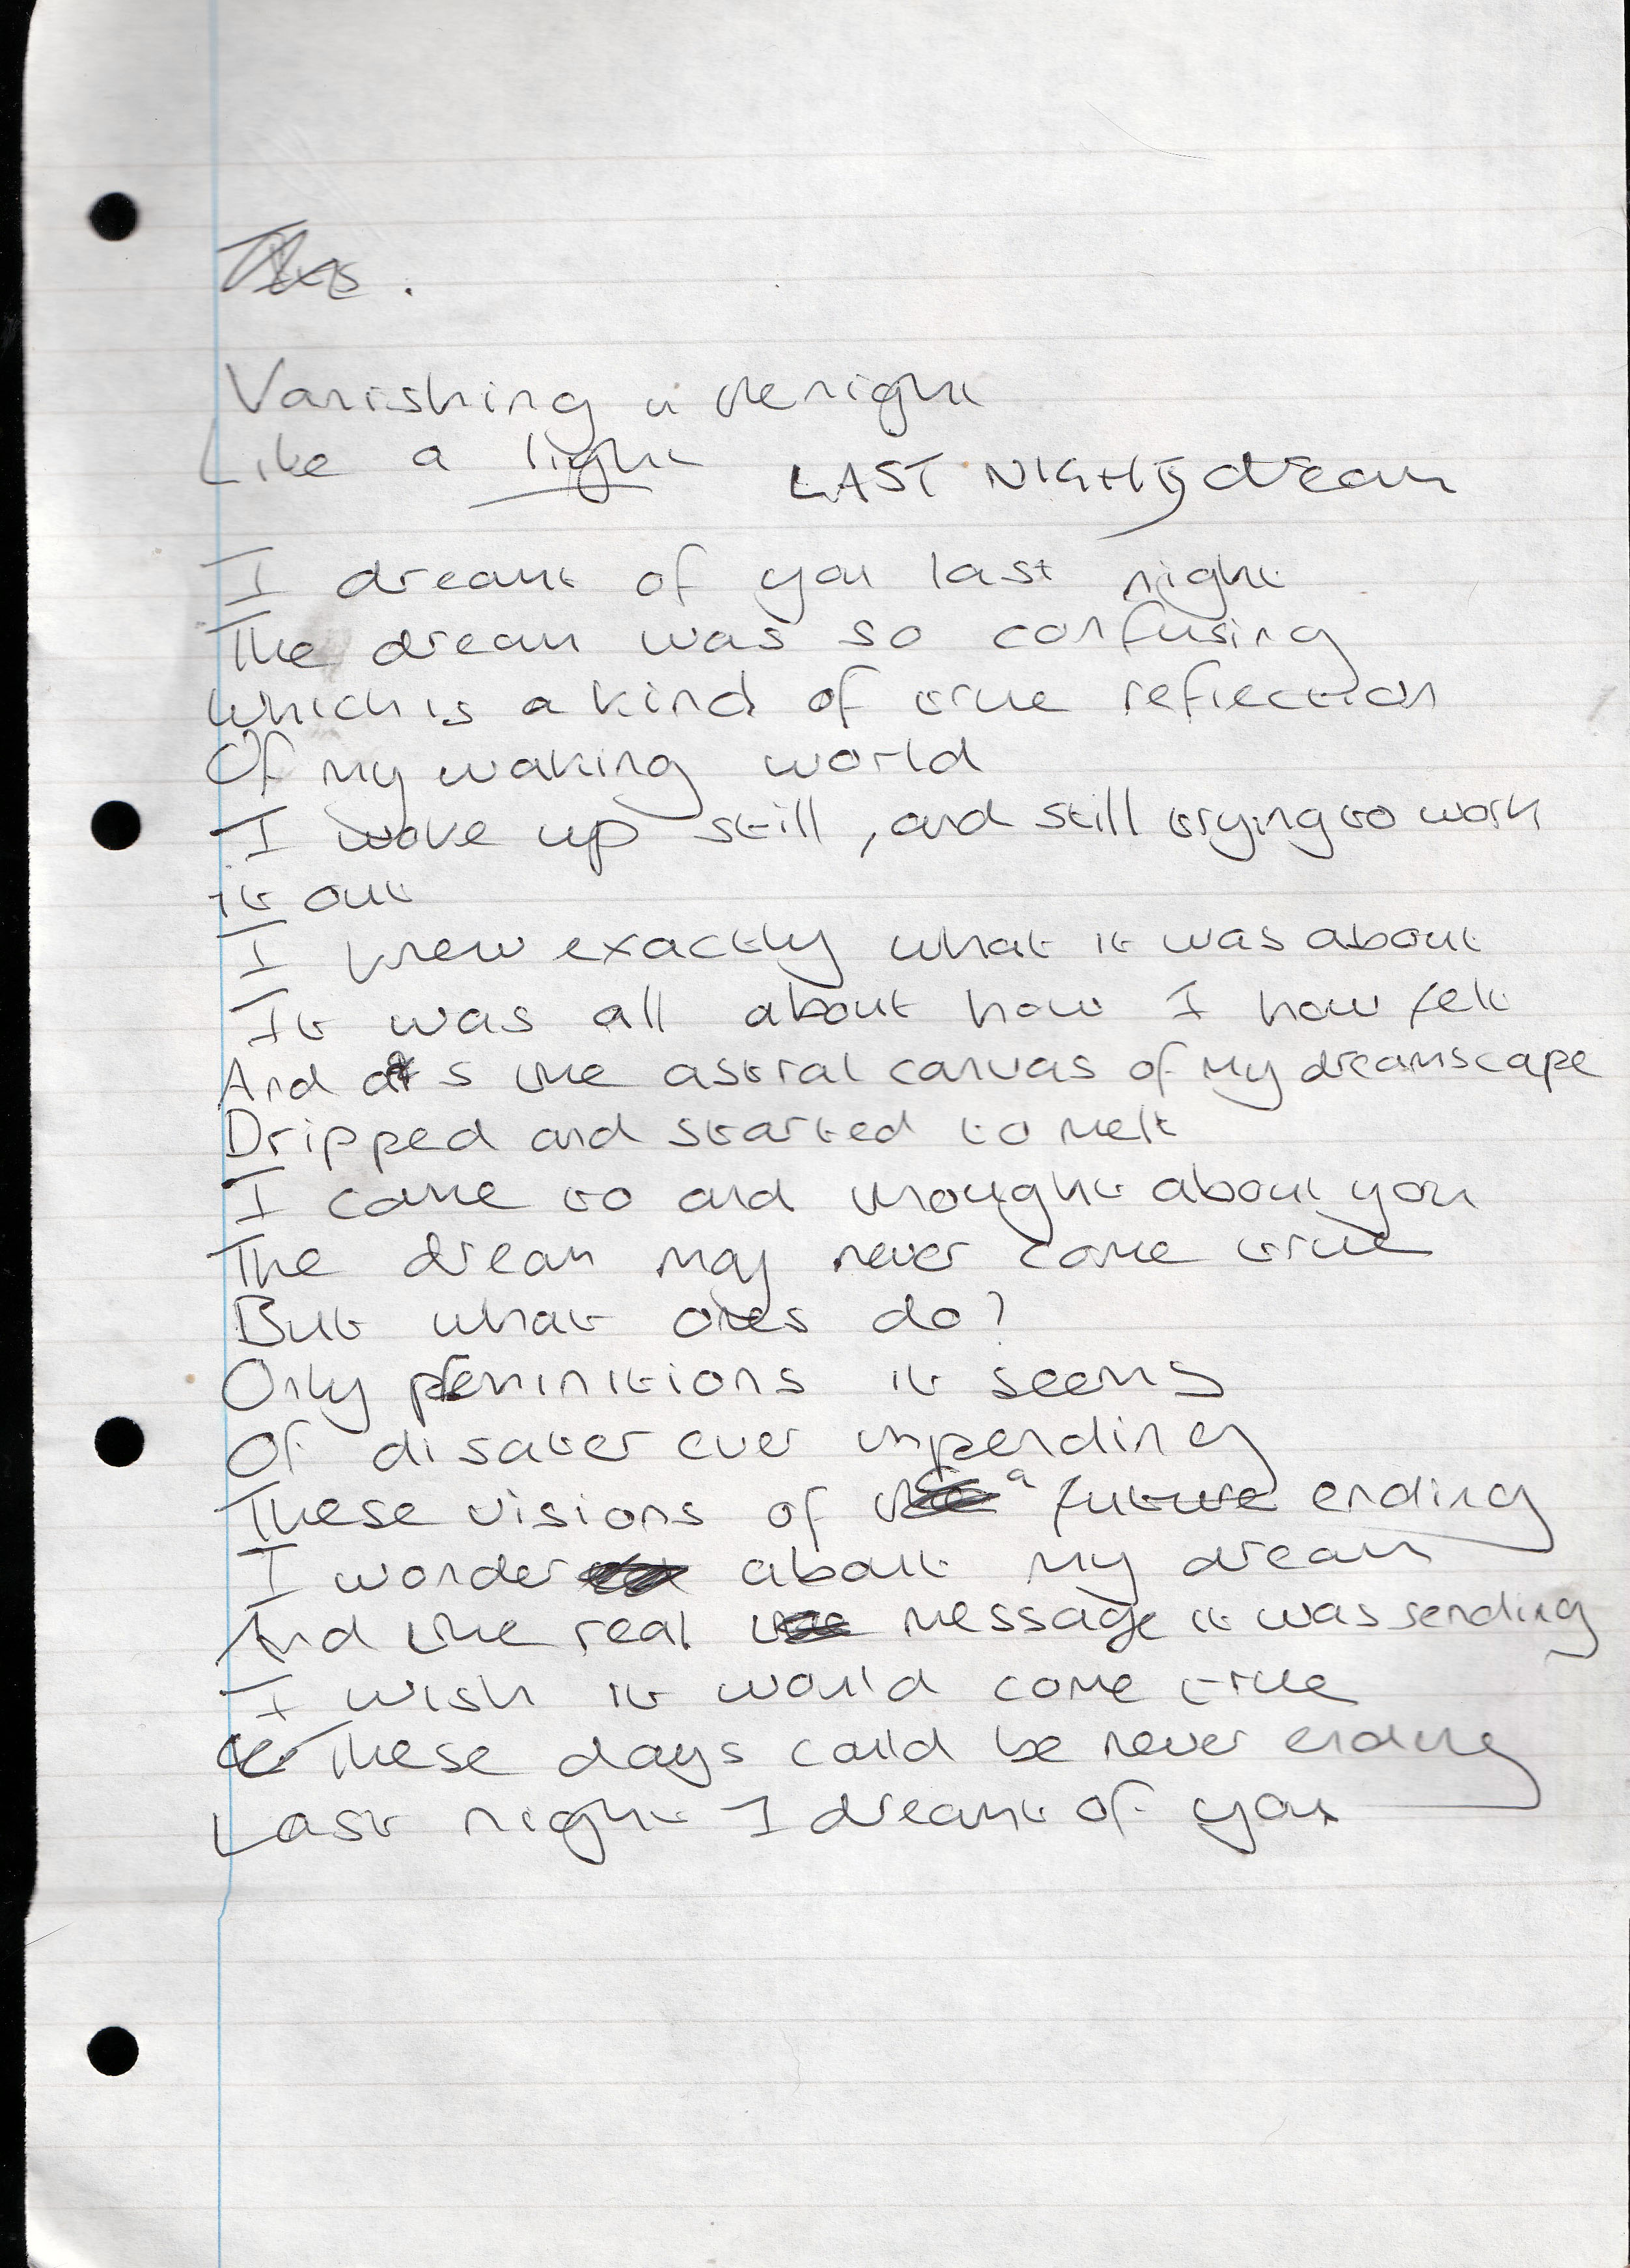 Vanishing in the night
Like a light LAST NIGHTS dream
I dreamt of you last night
The dream was so confusing
Which is a kind of true reflection
Of my waking world
I woke up still, and still trying to work
it out
I knew exactly what it was about
It was all about how I how felt
And as the astral canvas of my dreamscape
Dripped and started to melt
I came to and thought about you
The dream may never come true
But what ones do?
Only it seems
Of disater ever impending
These visions of a future ending
I wonder about my dream
And the real message it was sending
I wish it would come true
These days could be never ending
Last night I dreamt of you